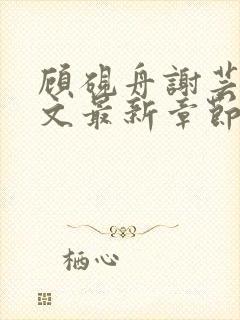 顾砚舟謝芸
文最新章節
栖心